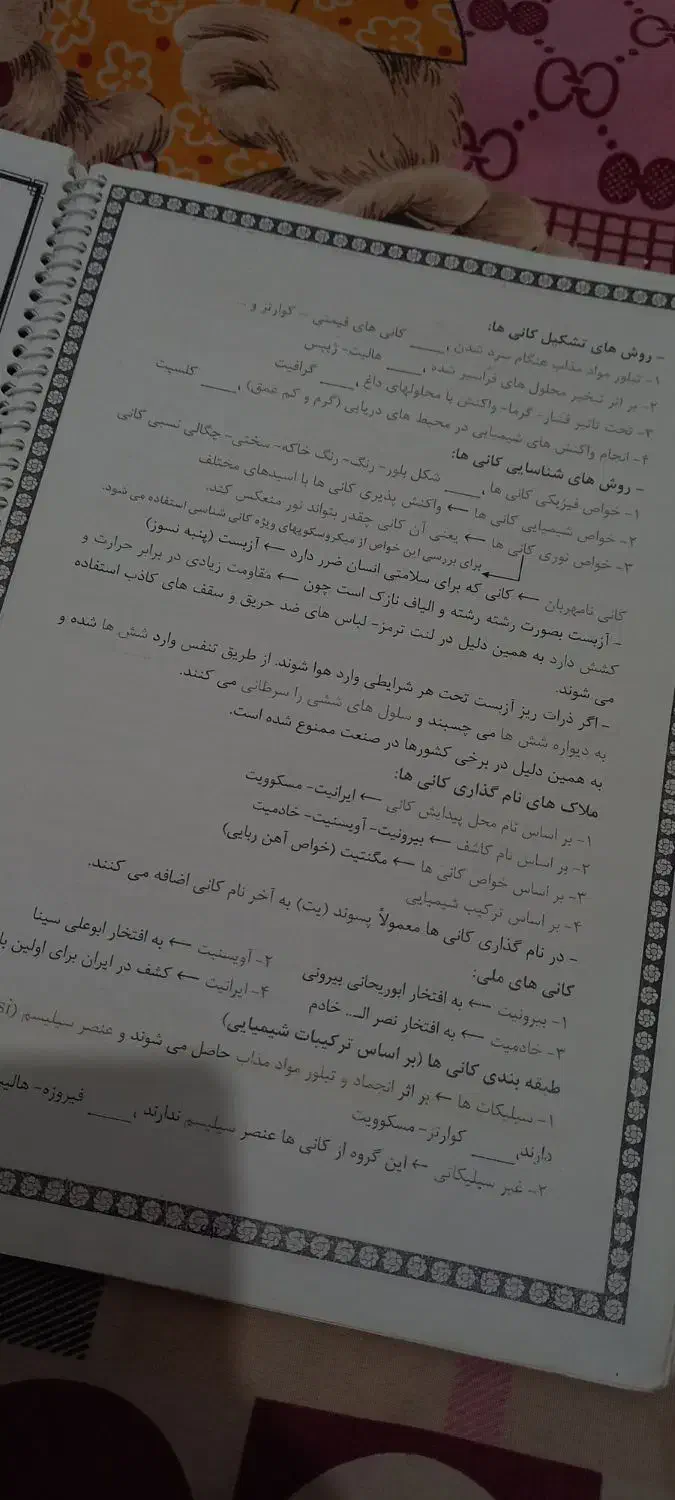 - روش های تشکیل کانی ها:
۱- تبلور مواد مذاب هنگام سرد شدن ،____ کانی های قیمتی - کوارتز و ...
۲- بر اثر تبخیر محلول های فراسیر شده ،____ هالیت- ژیپس
۳- تحت تاثیر فشار- گرما- واکنش با محلولهای داغ ،____ گرافیت
۴- انجام واکنش های شیمیایی در محیط های دریایی (گرم و کم عمق) ،____ کلسیت
- روش های شناسایی کانی ها:
۱- خواص فیزیکی کانی ها ،____ شکل بلور- رنگ- رنگ خاکه- سختی- چگالی نسبی کانی
۲- خواص شیمیایی کانی ها ← واکنش پذیری کانی ها با اسیدهای مختلف
۳- خواص نوری کانی ها ← یعنی آن کانی چقدر بتواند نور منعکس کند.
برای بررسی این خواص از میکروسکوپهای ویژه کانی شناسی استفاده می شود.
کانی نامهربان ← کانی که برای سلامتی انسان ضرر دارد ← آزبست (پنبه نسوز)
- آزبست بصورت رشته رشته و الیاف نازک است چون ← مقاومت زیادی در برابر حرارت و
کشش دارد به همین دلیل در لنت ترمز- لباس های ضد حریق و سقف های کاذب استفاده
می شوند.
- اگر ذرات ریز آزبست تحت هر شرایطی وارد هوا شوند. از طریق تنفس وارد شش ها شده و
به دیواره شش ها می چسبند و سلول های ششی را سرطانی می کنند.
به همین دلیل در برخی کشورها در صنعت ممنوع شده است.
ملاک های نام گذاری کانی ها:
۱- بر اساس نام محل پیدایش کانی ← ایرانیت- مسکوویت
۲- بر اساس نام کاشف ← بیرونیت- آویسنیت- خادمیت
۳- بر اساس خواص کانی ها ← مگنتیت (خواص آهن ربایی)
۴- بر اساس ترکیب شیمیایی
- در نام گذاری کانی ها معمولاً پسوند (یت) به آخر نام کانی اضافه می کنند.
کانی های ملی:
۱- بیرونیت ← به افتخار ابوریحانی بیرونی ۲- آویسنیت ← به افتخار ابوعلی سینا
۳- خادمیت ← به افتخار نصر الـ.. خادم ۴- ایرانیت ← کشف در ایران برای اولین
طبقه بندی کانی ها (بر اساس ترکیبات شیمیایی)
۱- سیلیکات ها ← بر اثر انجماد و تبلور مواد مذاب حاصل می شوند و عنصر سیلیسم (si
دارند،____ کوارتز- مسکوویت
۲- غیر سیلیکاتی ← این گروه از کانی ها عنصر سیلیسم ندارند ،____ فیروزه-